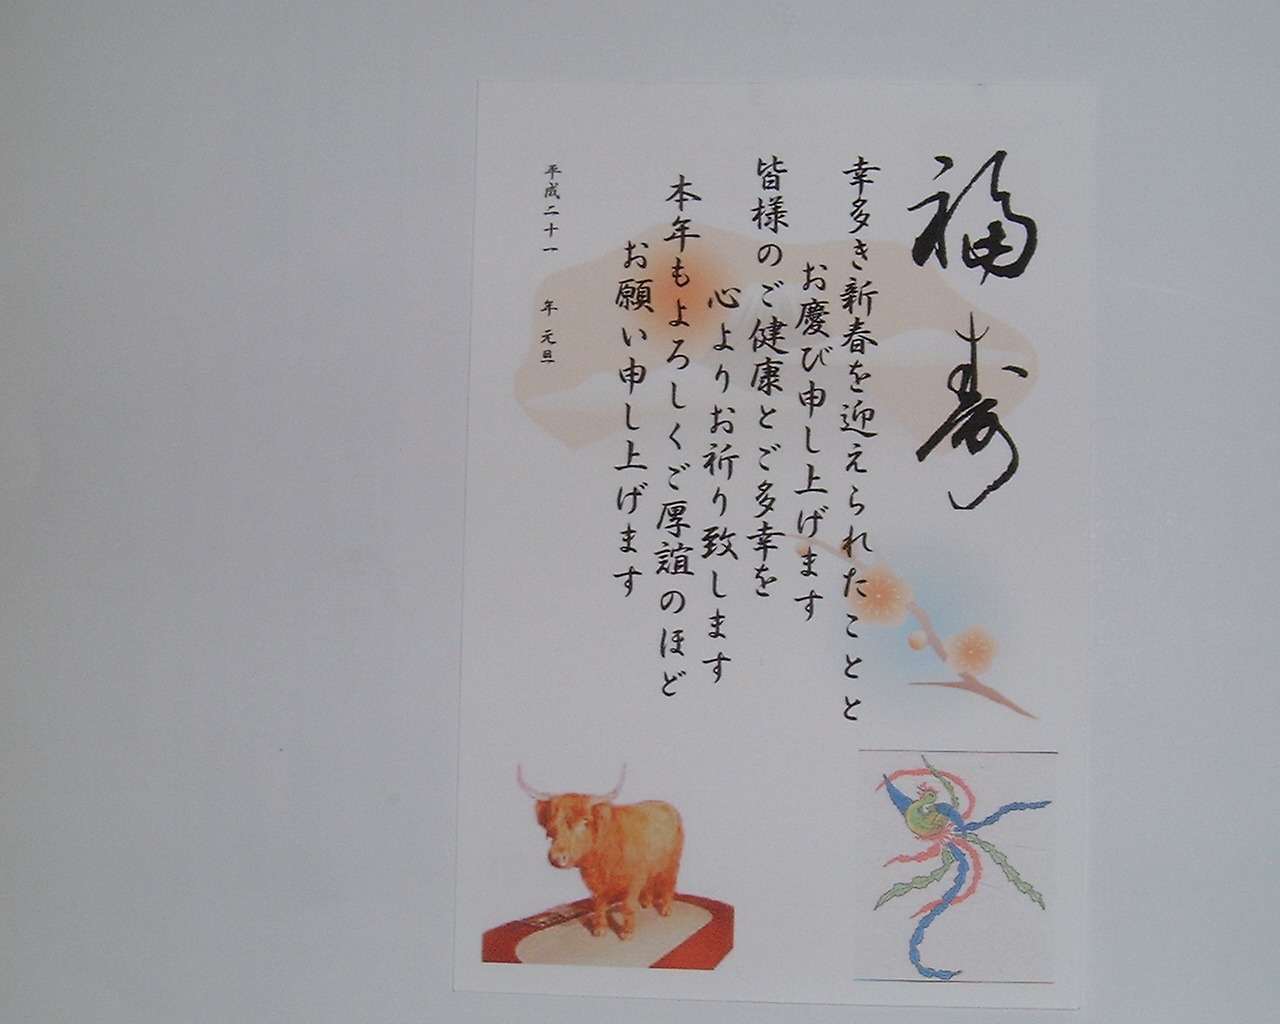 福寿
幸多き新春を迎えられたことと
お慶び申し上げます
皆様のご健康とご多幸を
心よりお祈り致します
本年もよろしくご厚誼のほど
お願い申し上げます
平成二十一年 元旦